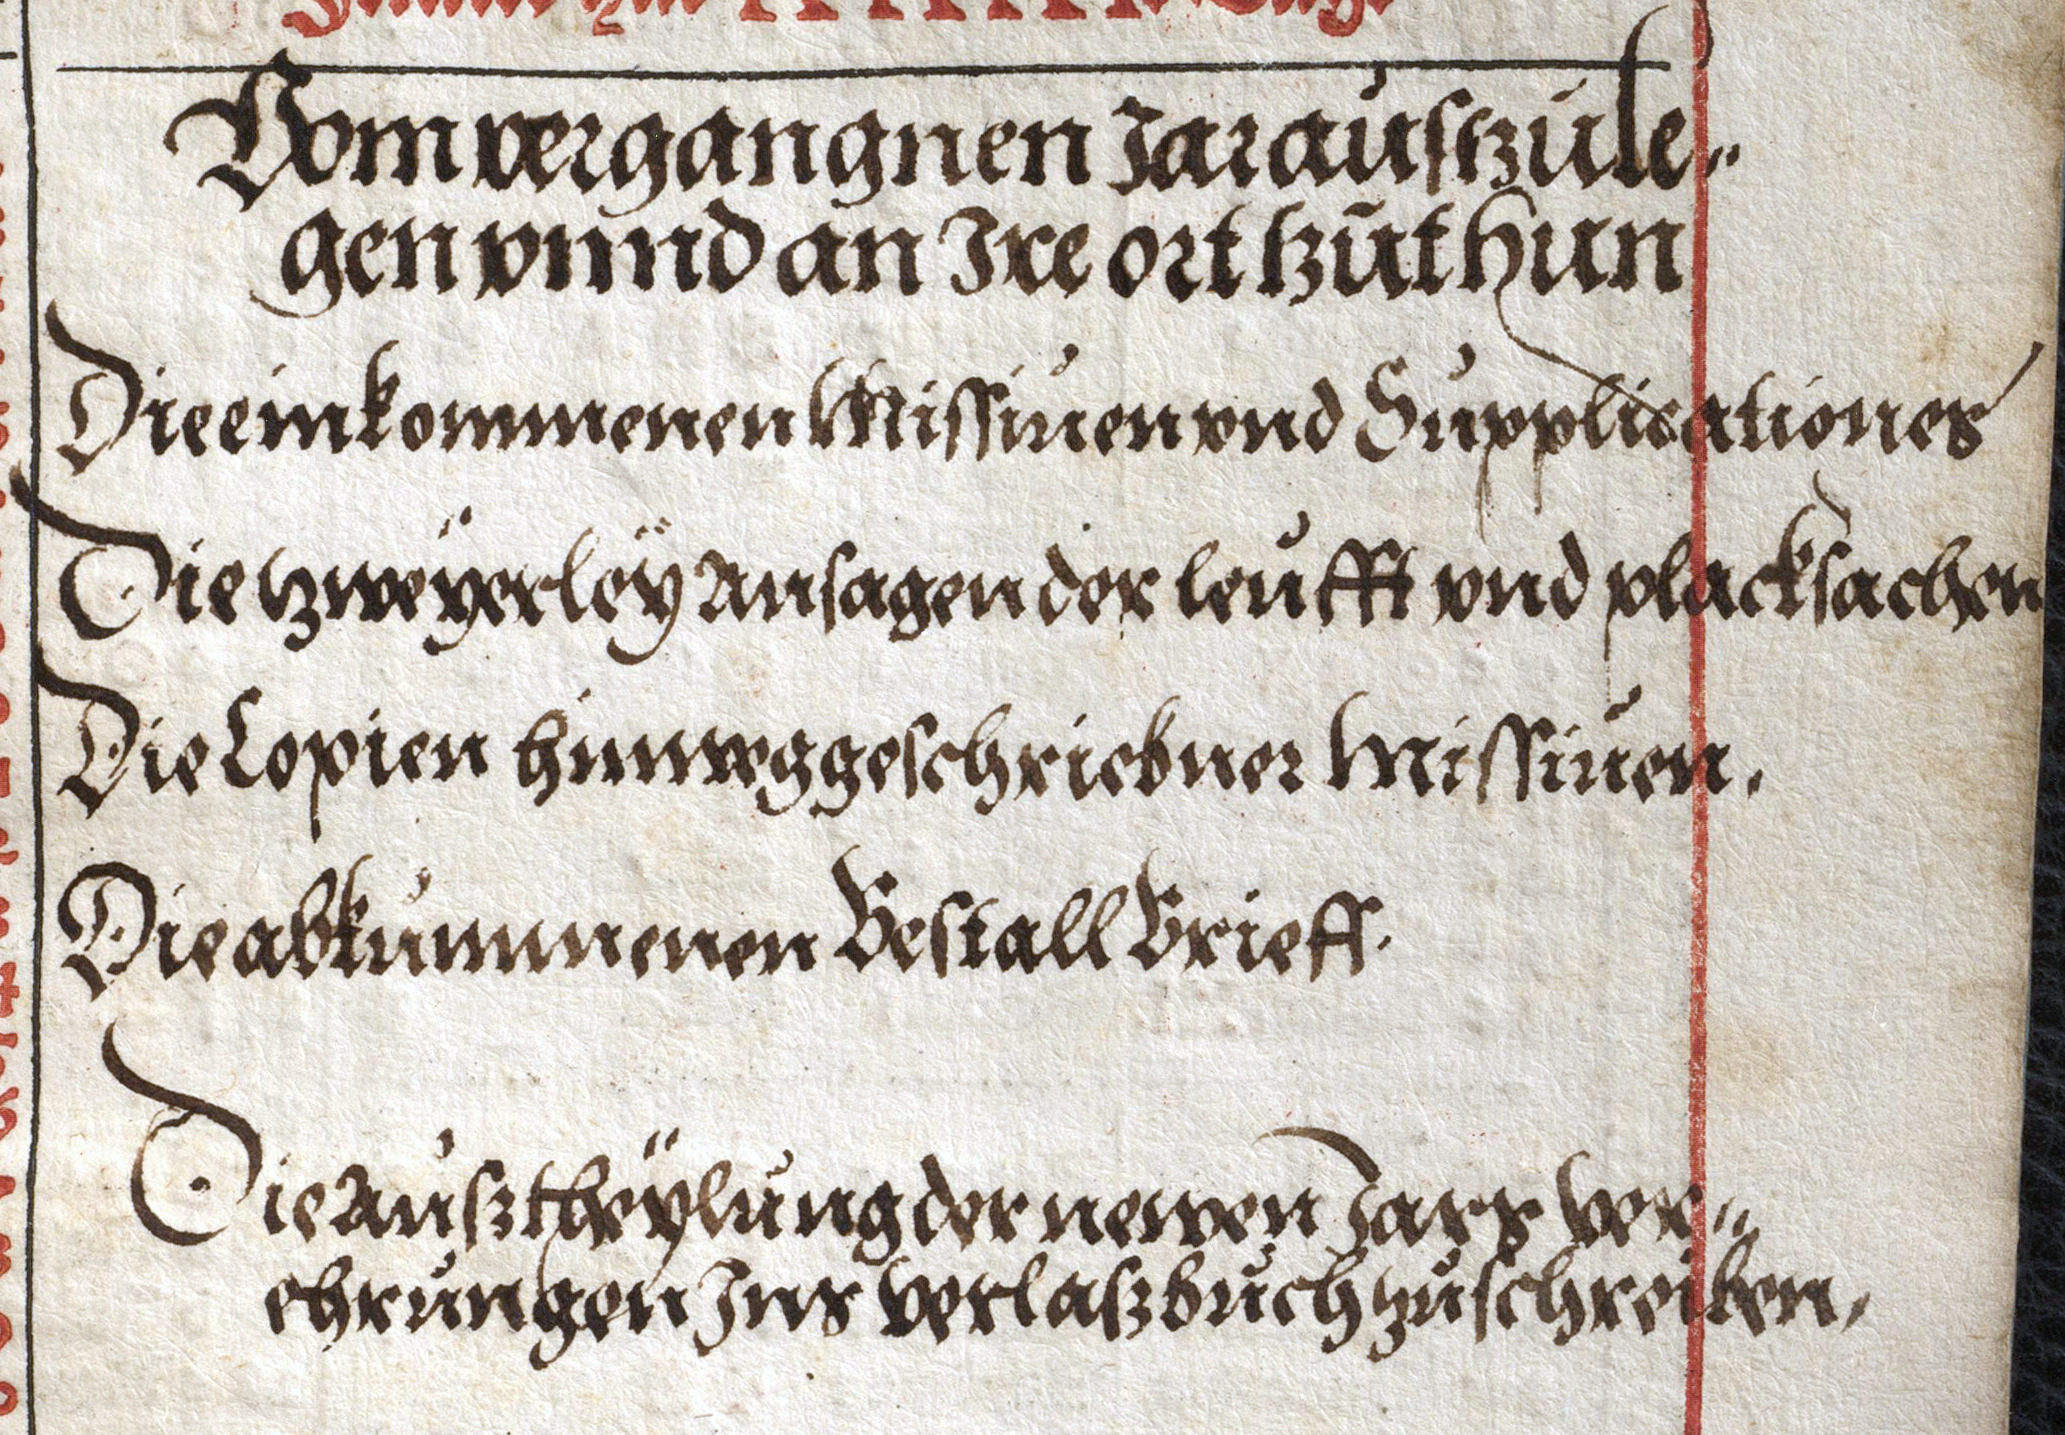 Vom vergangnen Jar ausztzule⸗
gen vnnd an Jre ort tzuthun
Die einkommenen Missiuen vnd Supplicationes
Die tzweÿerleÿ Ansagen der leufft vnd placksachen
Die Copien hinweggeschriebner Missiuen.
Die abkummenen Bestall Brieff.
Die Ausztheÿlung der newen Jars Ver⸗
ehrungen Jns Verlaszbuch zuschreiben,